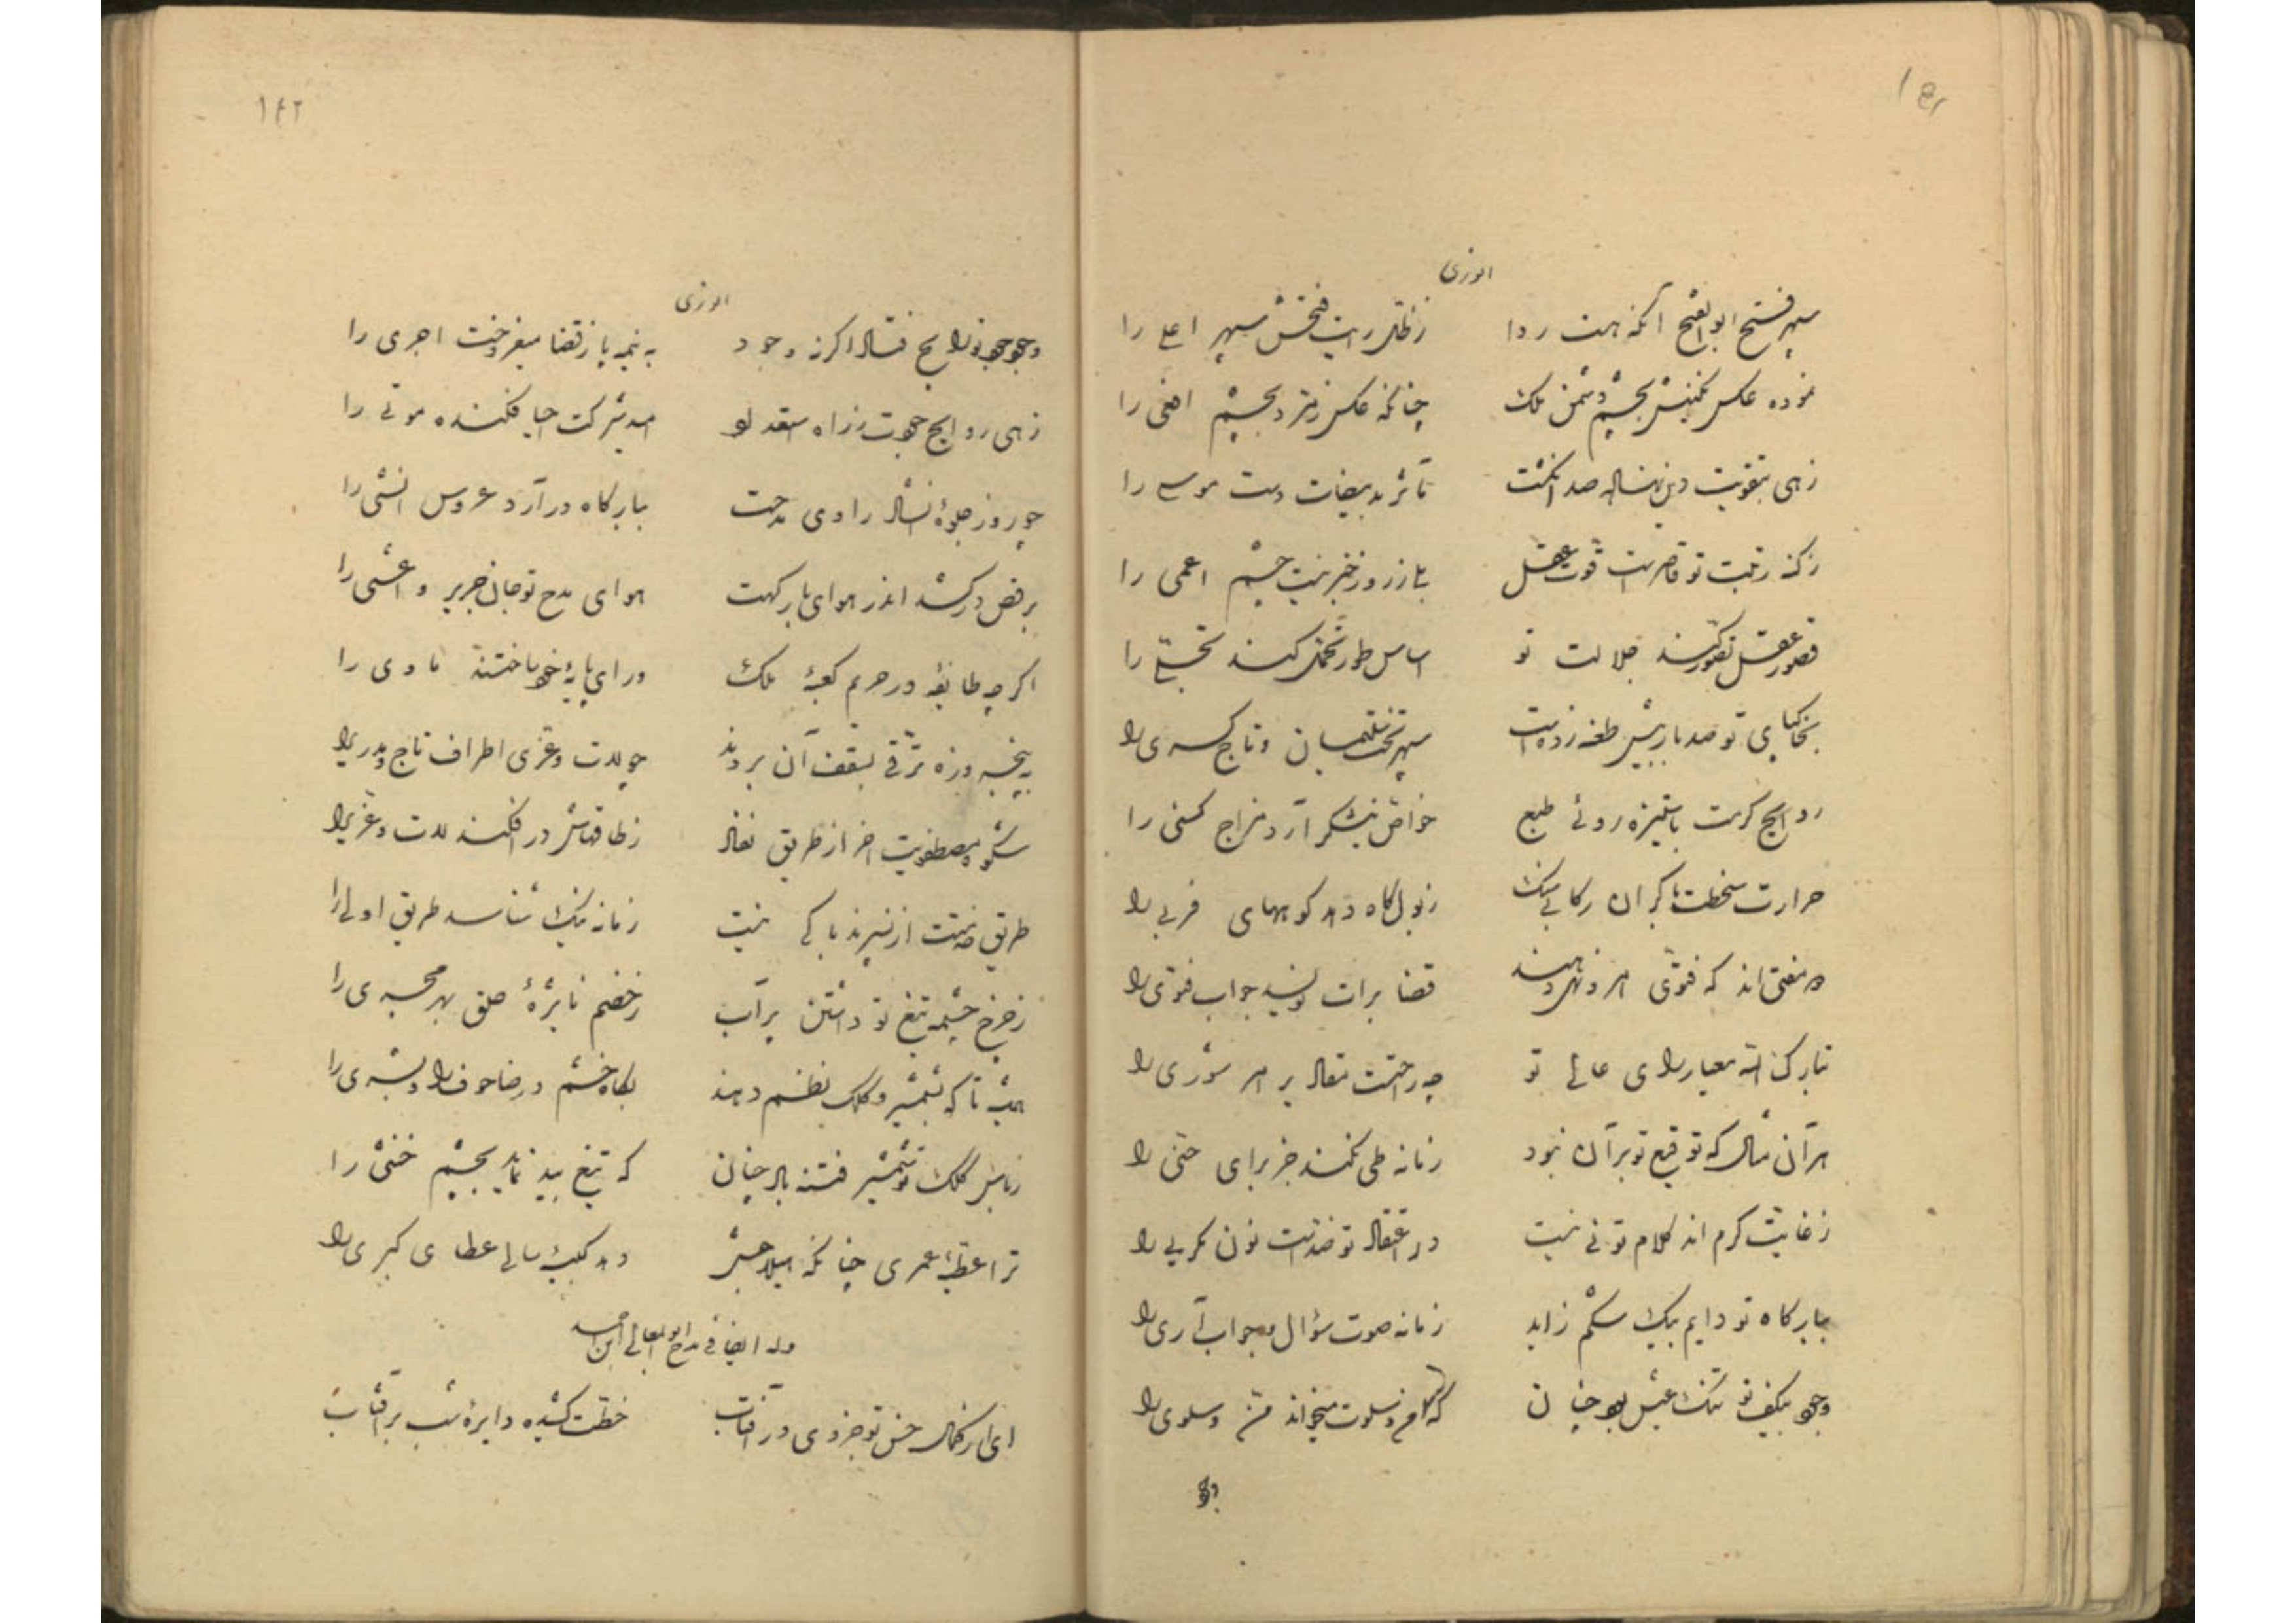 انوری
سپهر فتح ابوالفتح آنکه هست ردا
ز ظل رایت فتحش سپهر اعلی را
نموده عکس نگینش بچشم دشمن ملک
چنانکه عکس زمرد بچشم افعی را
زهی بتقویت دین نهاده صد انگشت
مآثر ید بیضات دست موسی را
ز کنه رتبت تو قاصر است قوت عقل
بلی ز روز خبر نیست چشم اعمی را
قصور عقل تصور کند جلالت تو
اساس طور تحمل کند تجلی را
بخاکپای تو صد بار بیش طعنه زده است
سپهر تخت سلیمان و تاج کسری را
روایح کرمت با ستیزه‌روئی طبع
خواص نیشکر آرد مزاج کسنی را
حرارت سخطت با گران رکابی سنگ
ذبول کاه دهد کوههای فربی را
دو مفتی‌اند که فتوی امر و نهی دهند
قضا برات نویسد جواب فتوی را
تبارک الله معیار رای عالی تو
چه راجحست مقادیر امر شوری را
هر آن مثال که توقیع تو بر آن نبود
زمانه طی نکند جز برای حنی را
ز غایت کرم اندر کلام تو نی نیست
در اعتقاد تو ضد است نون مگر یی را
ببارگاه تو دایم بیک شکم زاید
زمانه صوت سؤال و جواب آری را
وجود بی‌کف تو تنگ عیش بود چنان
که امن و سلوت میخواند من و سلوی را
۱۴۲
انوری
وجود جود تو رایج فتاد اگر نه وجود
به نیمه باز قضا میفروخت اجری را
زهی روایح جودت ز راه استعداد
امید شرکت احیا فکنده موتی را
چو روز جلوه انشاد راوی مدحت
ببارگاه درآرد عروس انشی را
برقص درکشد اندر هوای بارگهت
هوای مدح تو جان جریر و اعشی را
اگر چه طایفه در حریم کعبه ملک
ورای پایه خود ساختند ماوی را
به پنجروزه ترقی بسقف آن بردند
چو لات و عزی اطراف تاج و مدری را
شکوه مصطفویت آخر از طریق نفاذ
ز طاقهاش درافکند لات و عزی را
طریق خدمتت ار نسپرند باکی نیست
زمانه نیک شناسد طریق اولی را
ز چرخ چشمه تیغ تو داشتن پرآب
ز خصم نایژه حلق بهر مجری را
همیشه تا که بشمشیر و کلک نظم دهند
بگاه خشم و رضا خوف را و بشری را
ز باس کلک تو شمشیر فتنه باد چنان
که تیغ بید نماید بچشم خنثی را
ترا عطیه عمری چنانکه هیلاجش
دهد کبیسه سالی عطای کبری را
وله ایضا فی مدح ابو المعالی ابن احمد
ای از کمال حسن تو جزوی در آفتاب
خطت کشیده دایره شب بر آفتاب